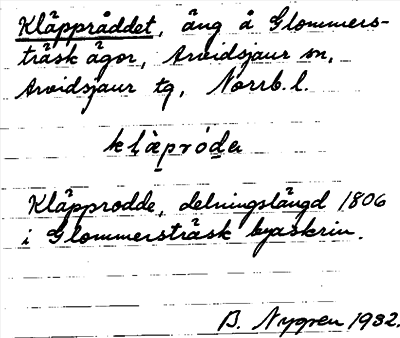 Kläppråddet, äng å Glommers-
träsk ägor, Arvidsjaur sn,
Arvidsjaur tg, Norrb. l.
klæ̀pró̱da
Kläpprodde, delningslängd 1806
i Glommersträsk byaskrin.
B. Nygren 1932.